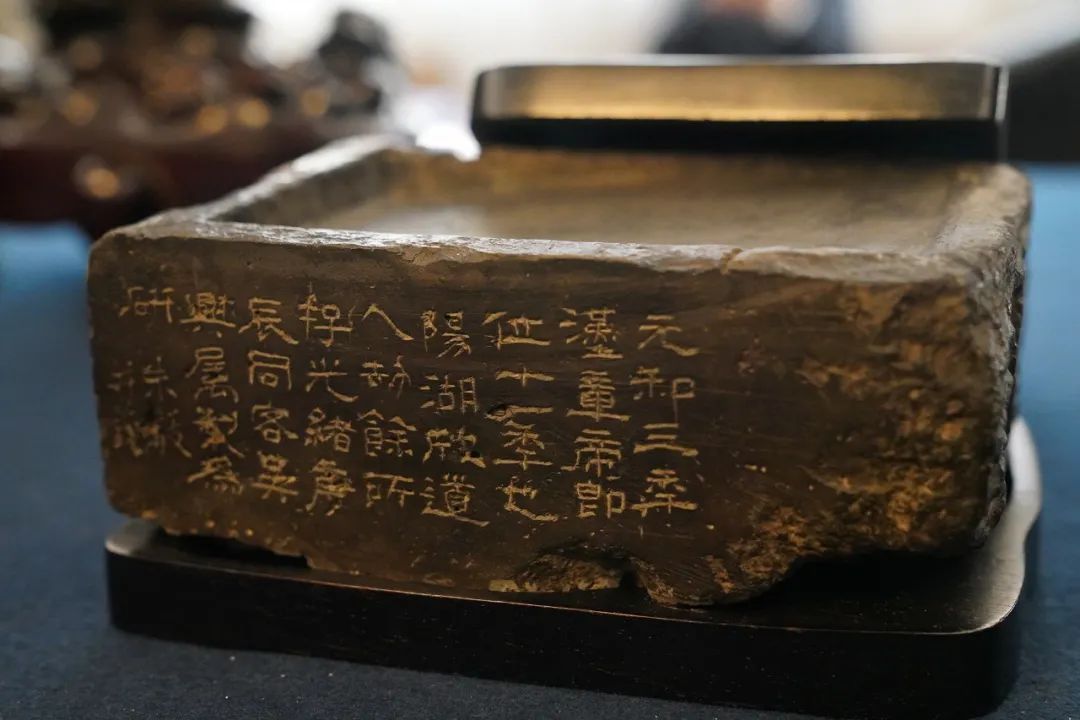 元和三年
漢章帝即
位十一年也
陽湖道
人劫餘所
光緒庚
辰同客吳
興屬為
研